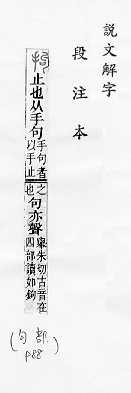 說文解字
段注本
拘 止也从手句手句者以手止之也句亦聲舉朱切古音在四部讀如鉤
(句部 p88)